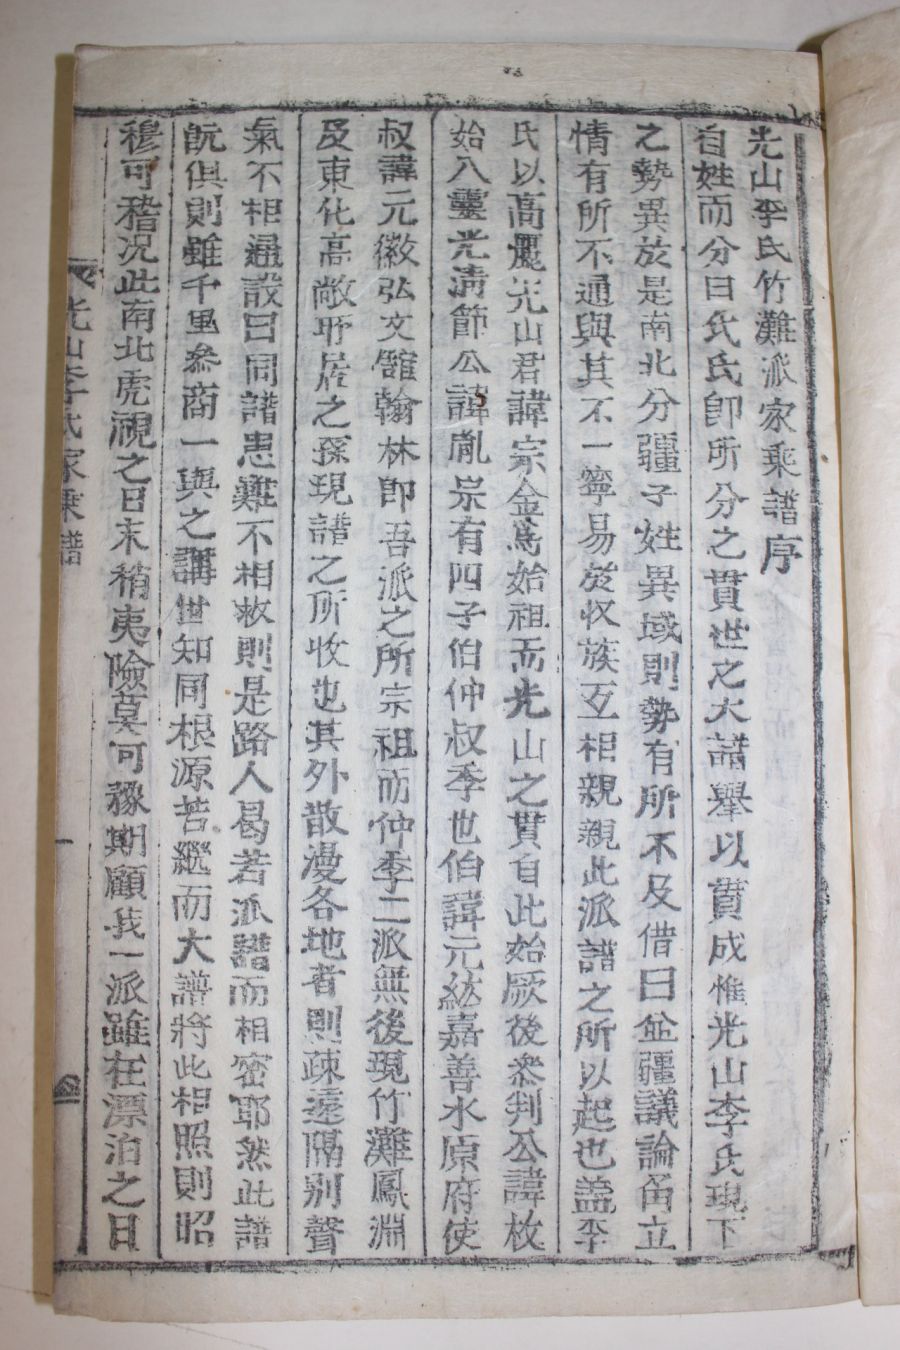 光山李氏竹灘派家乘譜序
自姓而分曰氏氏卽所分之貫世之大譜擧以貫成惟光山李氏現下
之勢異於是南北分疆子姓異域則勢有所不及借曰並疆議論角立
情有所不通與其不一寧易從收族互相親親此派譜之所以起也盖李
氏以高麗光山君諱宗金爲始祖而光山之貫自此始厥後參判公諱枚
始入靈光淸節公諱胤宗有四子伯仲叔季也伯諱元紘嘉善水原府使
叔諱元徽弘文舘翰林卽吾派之所宗祖而仲季二派無後現竹灘鳳淵
及東化高敞所居之孫現譜之所收也其外散漫各地者則疎遠隔別聲
氣不相通設曰同譜患難不相救則是路人曷若派譜而相密耶然此譜
旣俱則雖千里參商一與之講世知同根源若繼而大譜將此相照則昭
穆可稽况此南北虎視之日未稍夷險莫可豫期顧我一派雖在漂泊之日
光山李氏家乘譜
一